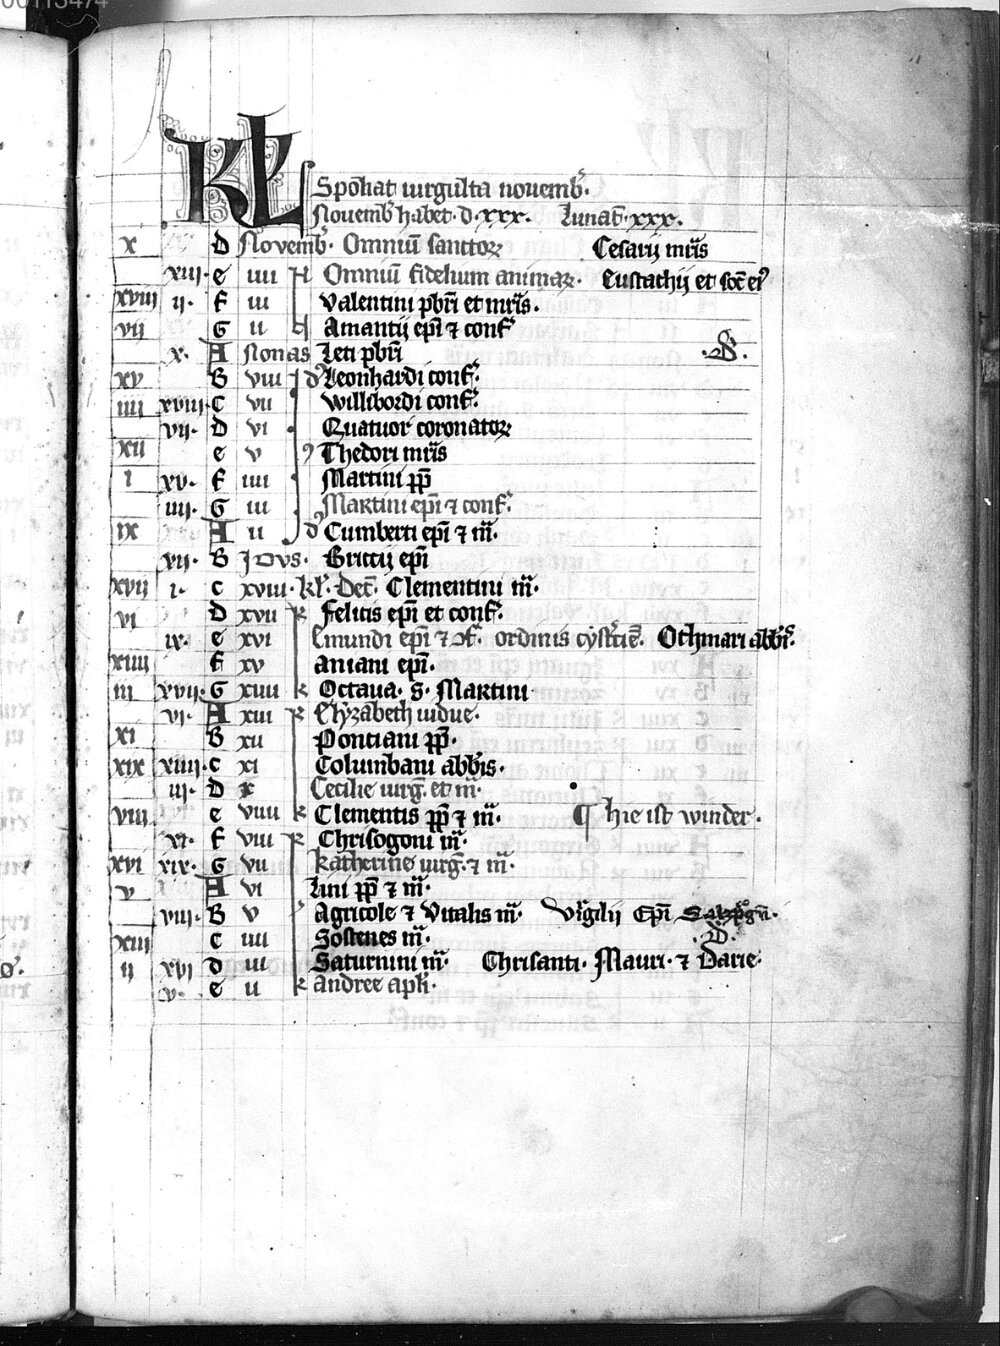 00113474
KL Spoliat uirgulta nouemb̃.
Nouemb̃ habet · d · xxx. Lunat̃ · xxx.
x d Nouemb̃ · Omniũ sanctoꝝ Cesarij mr̃is
xiij · e iiij Omniũ fidelium animaꝝ · Eustachij et soc̃ eiꝰ
xviij ij · f iij Valentini pbr̃i et mr̃is ·
vij G ij Amantij ep̃i ⁊ conf̃
x · A Nonas Leti pbr̃i
xv B viij Leonhardi conf̃ ·
iiij xviij · c vij Willibordi conf̃ ·
vij · d vi Quatuor coronatoꝝ
xij e v Thedori mr̃is
i xv · f iiij Martini pp̃
iiij · G iij Martini ep̃i ⁊ conf̃ ·
ix A ij Cumberti ep̃i ⁊ m̃ ·
vij · B Idvs · Brictij ep̃i
xvij i · c xviij · kl̃ · dec̃ · Clementini m̃ ·
vi d xvij Felicis ep̃i et conf̃ ·
ix · e xvi Emundi ep̃i ⁊ ꝯf · ordinis cysterc̃ie · Othmari abb̃is
xiiij f xv Aniani ep̃i ·
iij xvij · G xiiij Octaua · S · Martini
vi · A xiij Elyzabeth uidue ·
xi B xij Pontiani pp̃ ·
xix xiiij · c xi Columbani abb̃is ·
iij · d x Cecilie uirg̃ · et m̃ ·
viij e viiij Clementis pp̃ ⁊ m̃ · ¶ hie ist winder ·
xi · f viij Chrisogoni m̃ ·
xvi xix · G vij Katherine uirg̃ · ⁊ m̃ ·
v A vi Lini pp̃ ⁊ m̃ ·
viij · B v Agricole ⁊ Vitalis m̃ · Virgilij Ep̃i
xiij c iiij Sostenes m̃ ·
ij xvi d iij Saturnini m̃ · Chrisanti · Mauri · ⁊ Darie ·
v · e ij Andree apl̃i ·